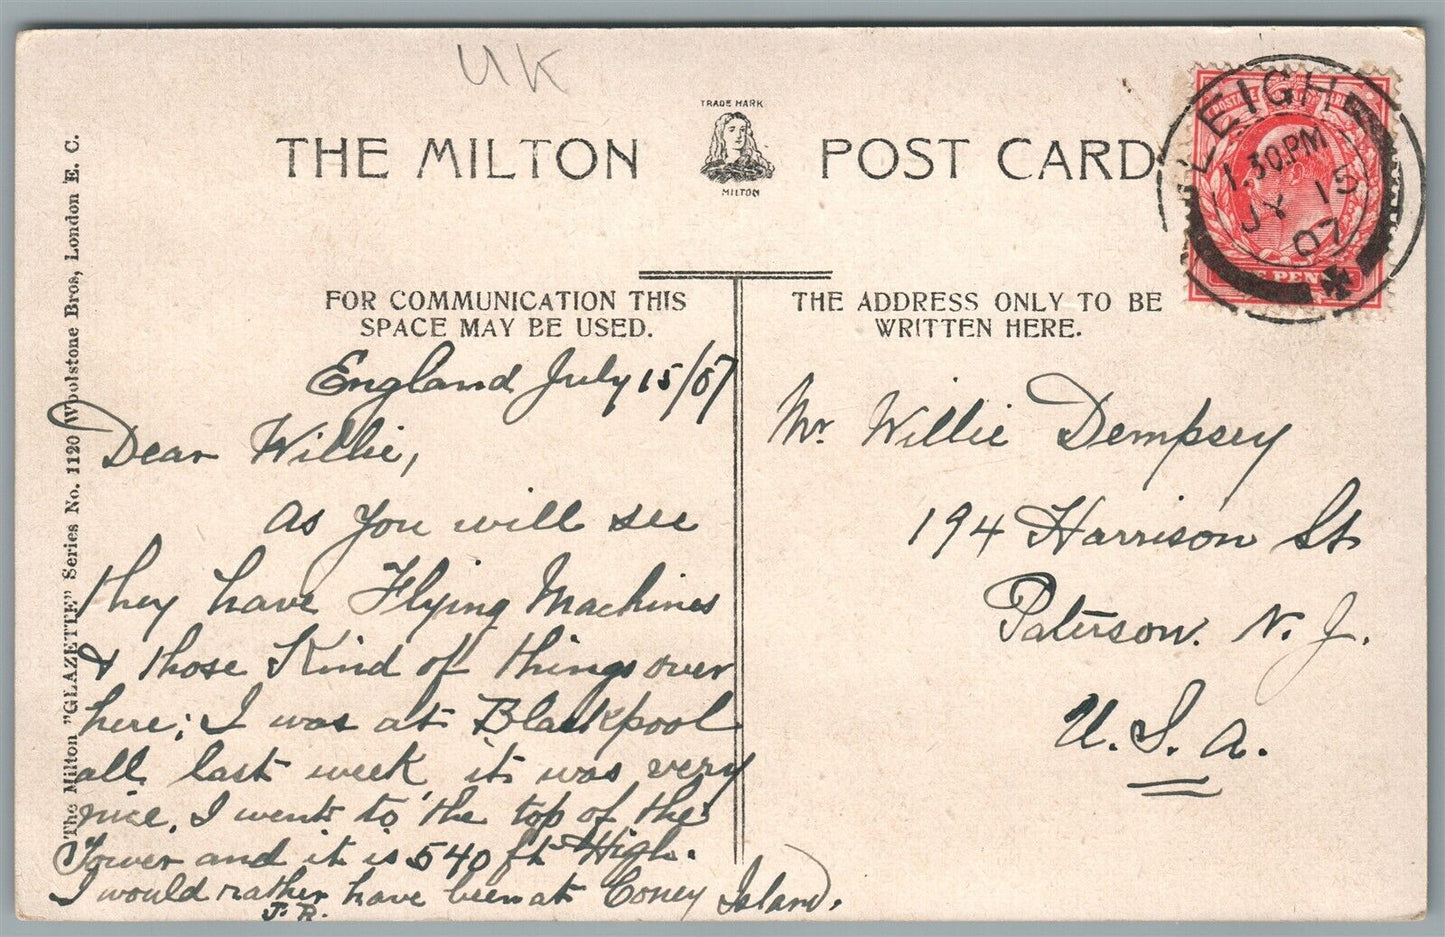 UK
TRADE MARK
THE MILTON POST CARD
MILTON
LEIGH
1.30.PM
JY 15
07
POSTAGE
PENNY
FOR COMMUNICATION THIS
SPACE MAY BE USED.
THE ADDRESS ONLY TO BE
WRITTEN HERE.
The Milton "GLAZETTE" Series No. 1120 Woolstone Bros, London E. C.
England July 15/07
Dear Willie,
as you will see
they have Flying Machines
& those Kind of things over
here; I was at Blackpool
all last week it was very
nice. I went to the top of the
Tower and it is 540 ft High.
I would rather have been at Coney Island.
J. R.
Mr Willie Dempsey
194 Harrison St
Paterson. N. J.
U. S. A.